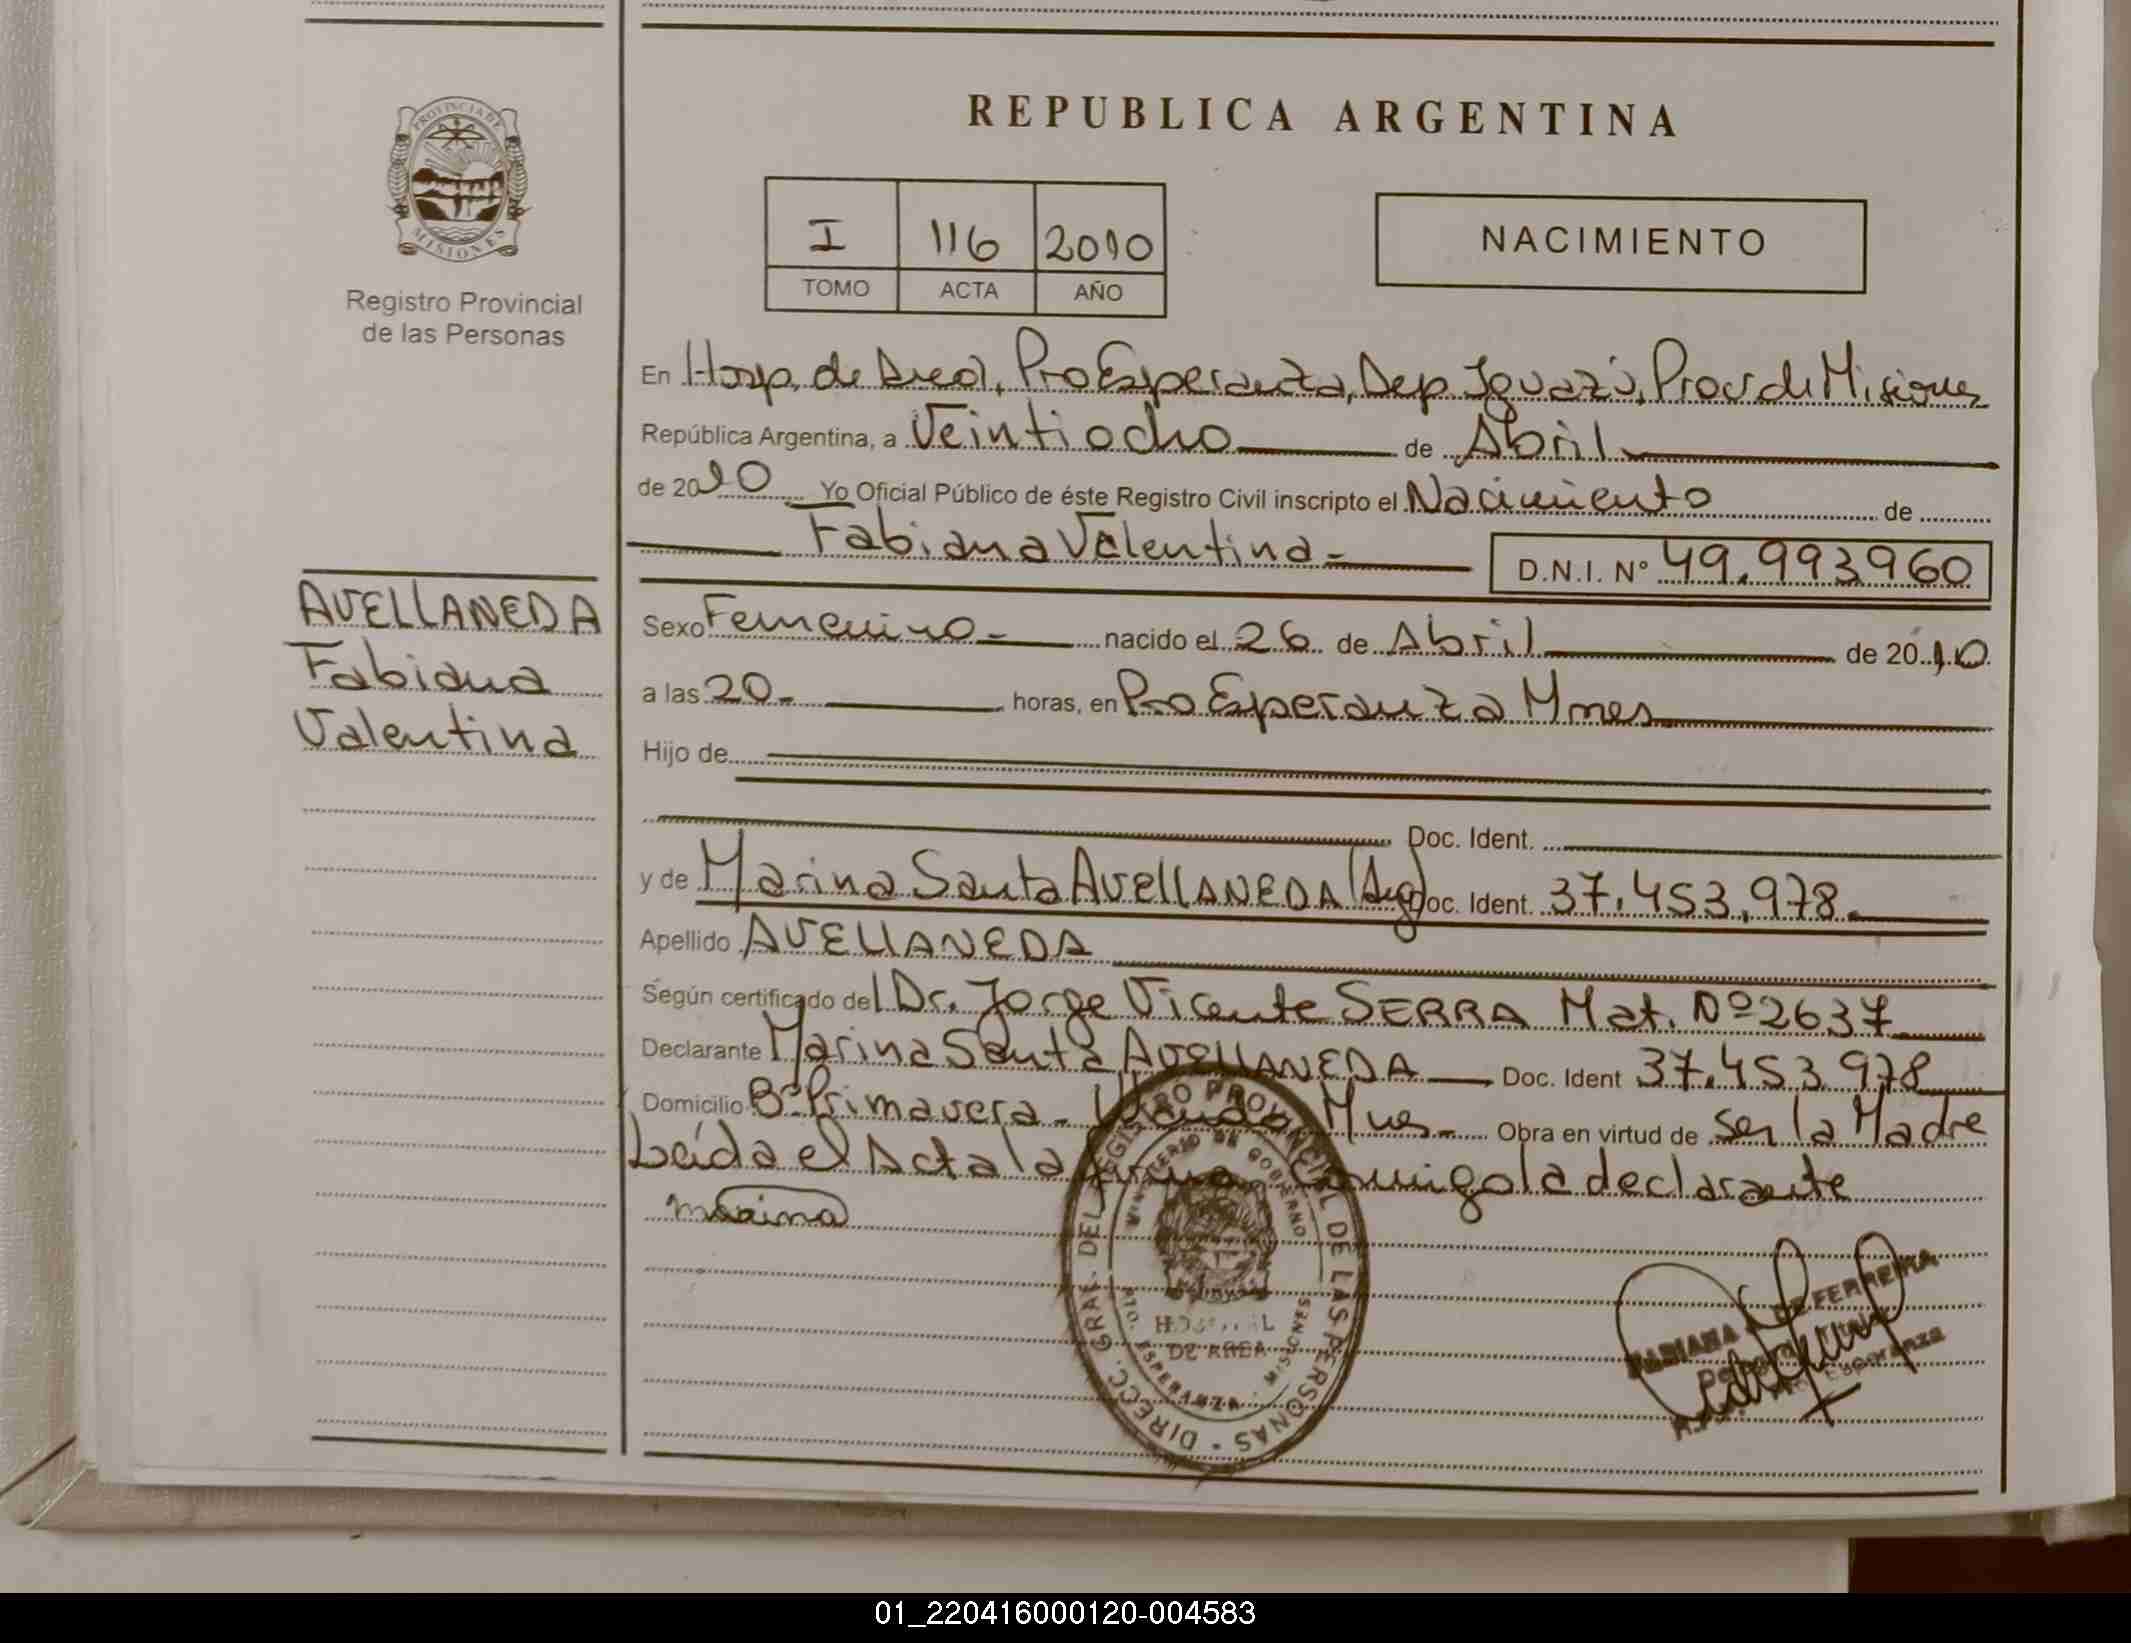 REPUBLICA ARGENTINA
PROVINCIA DE MISIONES
Registro Provincial
de las Personas
I 116 2010
TOMO ACTA AÑO
NACIMIENTO
En Hosp. de Area, Pto Esperanza, Dep. Iguazú, Prov de Misiones
República Argentina, a Veintiocho de Abril
de 2010 Yo Oficial Público de éste Registro Civil inscripto el Nacimiento de
Fabiana Valentina
D.N.I. N° 49.993960
AVELLANEDA
Fabiana
Valentina
Sexo Femenino nacido el 26 de Abril de 2010
a las 20 horas, en Pto Esperanza Mnes
Hijo de
Doc. Ident.
y de Marina Santa AVELLANEDA (Arg) Doc. Ident. 37.453.978
Apellido AVELLANEDA
Según certificado del Dr. Jorge Vicente SERRA Mat. Nº 2637
Declarante Marina Santa AVELLANEDA Doc. Ident 37.453.978
Domicilio Bº Primavera - Mnes Obra en virtud de ser la Madre
Leída el Acta la firma conmigo la declarante
marina
DIRECC. GRAL. DEL REGISTRO PROVINCIAL DE LAS PERSONAS
MINISTERIO DE GOBIERNO
HOSPITAL
DE AREA
PTO. ESPERANZA - MISIONES
FABIANA DE FERREIRA
Esperanza
01_220416000120-004583